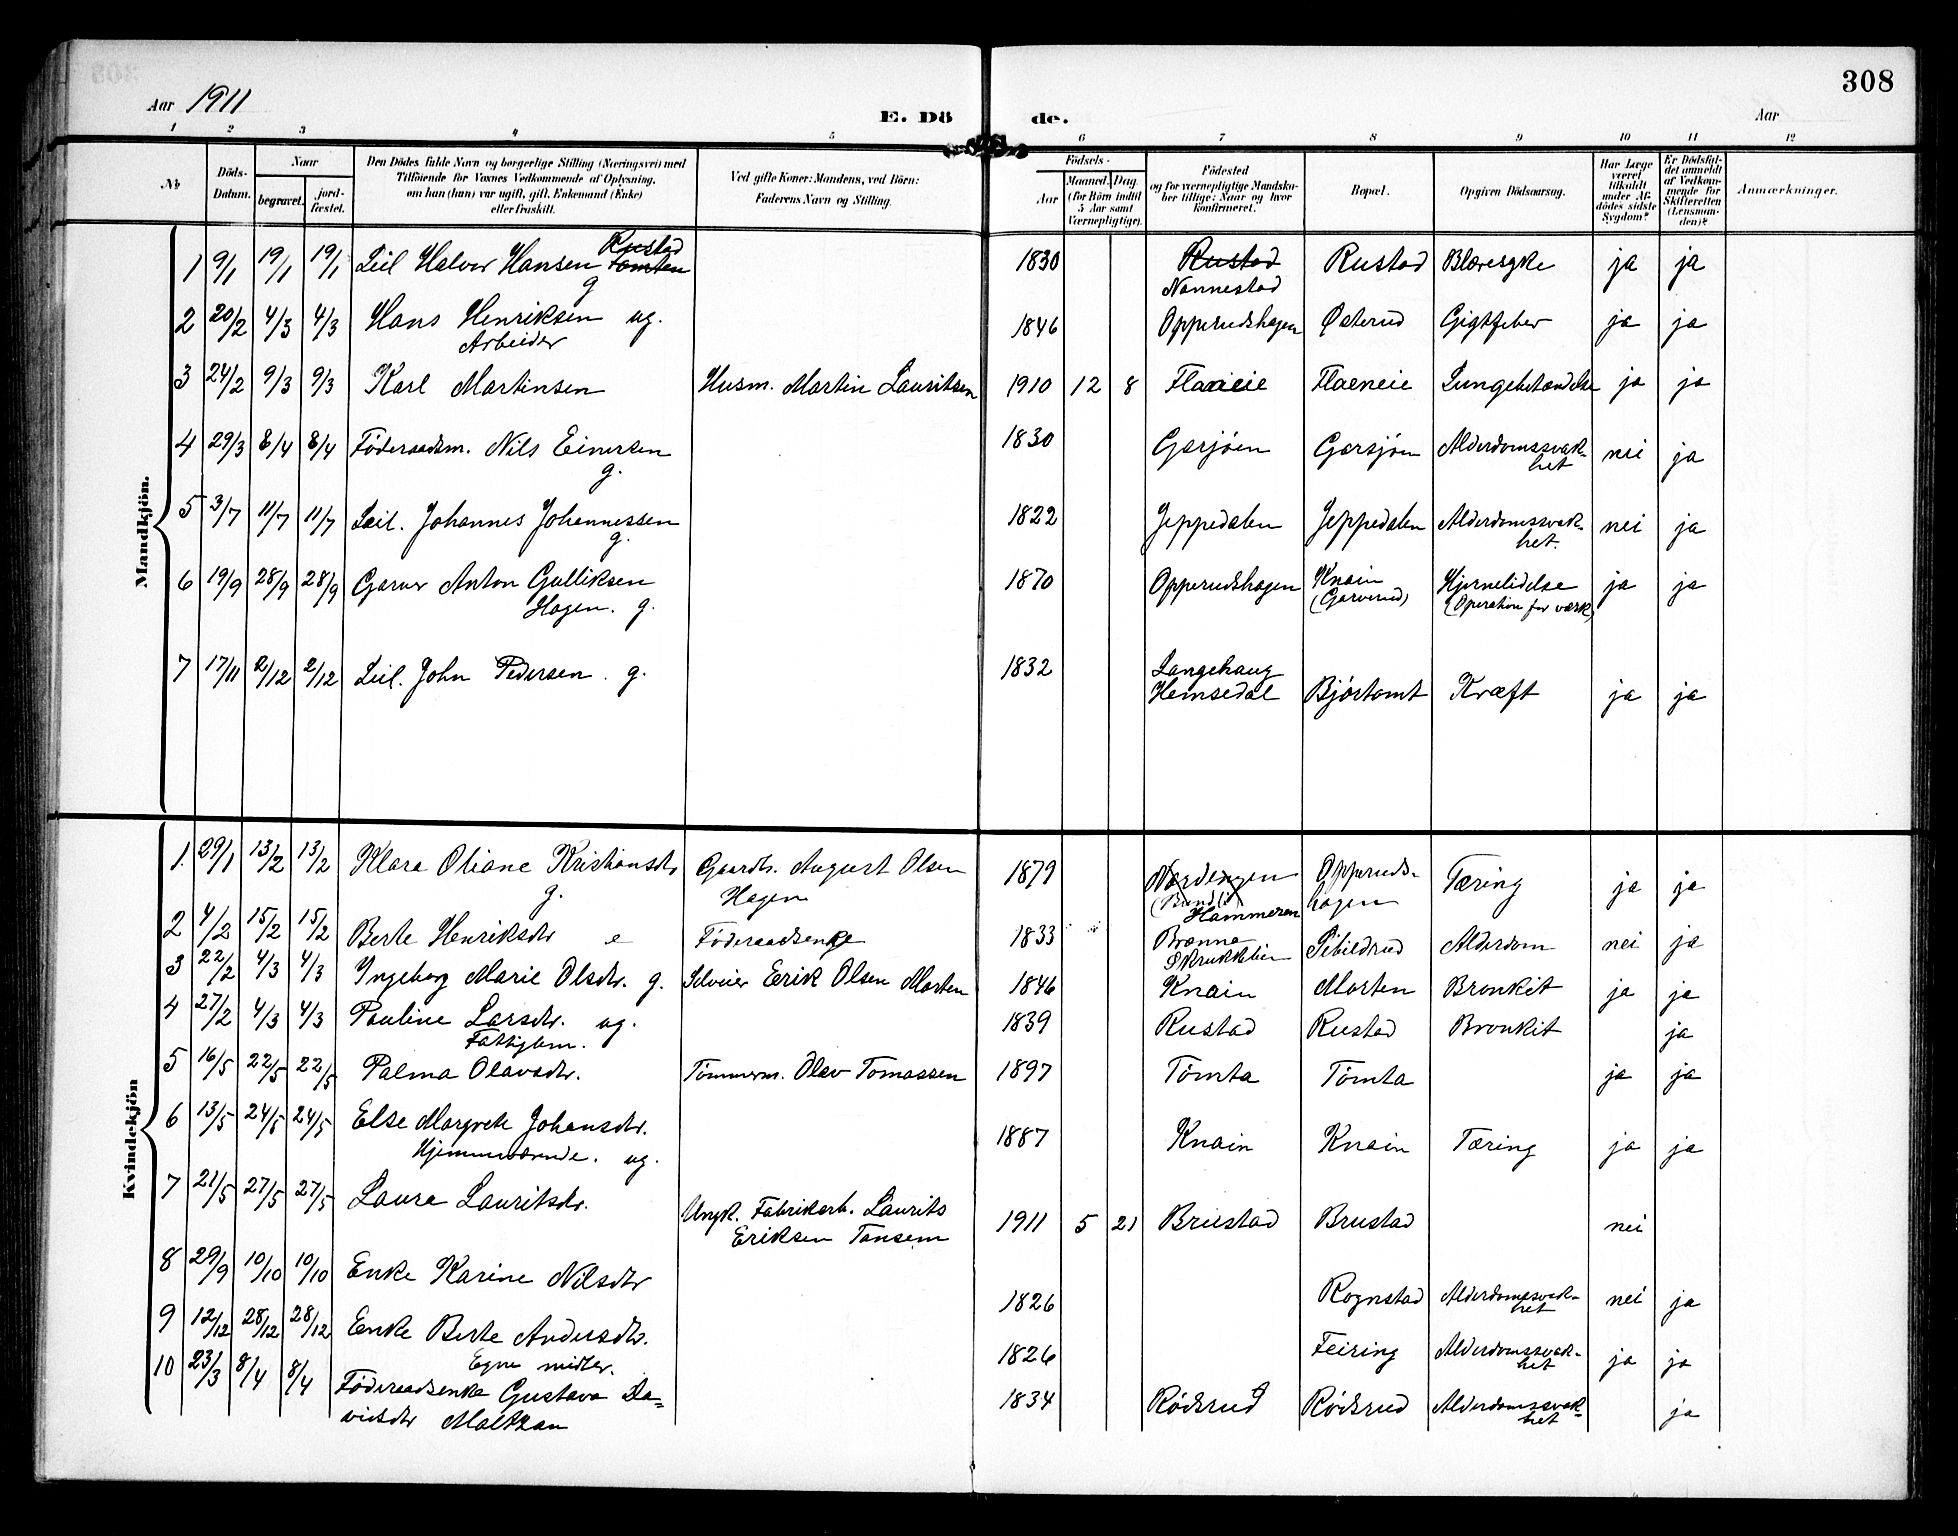 308
Aar 1911
E. Dö de.
Aar
1 2 3 4 5 6 7 8 9 10 11 12
No
Döds-Datum.
Naar
begravet.
jord-fæstet.
Den Dödes fulde Navn og borgerlige Stilling (Næringsvei) med
Tilföiende for Voxnes Vedkommende af Oplysning,
om han (hun) var ugift, gift, Enkemand (Enke)
eller fraskilt.
Ved gifte Koner: Mandens, ved Börn:
Faderens Navn og Stilling.
Födsels-
Aar
Maaned. Dag
(for Börn indtil
5 Aar samt
Værnepligtige).
Födested
og for værnepligtige Mandska-
ber tillige: Naar og hvor
konfirmeret.
Bopæl.
Opgiven Dödsaarsag.
Har Læge
været
tilkaldt
under Af-
dödes sidste
Sygdom?
Er Dödsfal-
det anmeldt
af Vedkom-
mende for
Skifteretten
(Lensman-
den)?
Anmærkninger.
Mandkjön.
Rustad
1 9/1 19/1 19/1 Leil Halvor Hansen Tomten 1830 Rustad Rustad Blæresyke ja ja
g Nannestad
2 20/2 4/3 4/3 Hans Henriksen ug. 1846 Opperudshagen Østerud Gigtfeber ja ja
Arbeider
3 24/2 9/3 9/3 Karl Martinsen Husm. Martin Lauritsen 1910 12 8 Flaeneie Flaeneie Lungebetændelse ja ja
4 29/3 8/4 8/4 Föderaadsm. Nils Einersen 1830 Garsjøen Garsjøen Alderdomssvak-
g. het nei ja
5 3/7 11/7 11/7 Leil. Johannes Johannessen 1822 Jeppedalen Jeppedalen Alderdomssvak- nei ja
g. het.
6 19/9 28/9 28/9 Garver Anton Gulliksen 1870 Opperudshagen Knain Hjernelidelse ja ja
Hagen. g. (Garverud) (Operation for værk)
7 17/11 2/12 2/12 Leil. John Pedersen. g. 1832 Langehaug
Hemsedal Bjørtomt Kræft ja ja
Kvindekjön
1. 29/1 13/2 13/2 Klara Oliane Kristiansdtr Gaardbr. August Olsen 1879 Nordengen Opperuds- Tæring ja ja
g. Hagen Hammeren hagen
2 4/2 15/2 15/2 Berte Henriksdtr e Föderaadsenke 1833 Brænna Sibildrud Alderdom nei ja
Skrukkelien
3 22/2 4/3 4/3 Ingeborg Marie Olsdtr. g. Selveier Eerik Olsen Morten 1846 Knain Morten Bronkit ja ja
4 27/2 4/3 4/3 Pauline Larsdtr. ug. 1839 Rustad Rustad Bronkit ja
Fattiglem.
5 16/5 22/5 22/5 Palma Olavsdtr. Tömmerm. Olav Tomassen 1897 Tömta Tömta ja ja
6 13/5 24/5 24/5 Else Margrete Johansdtr. 1887 Knain Knain Tæring ja ja
Hjemmeværende. ug.
7 21/5 27/5 27/5 Laura Lauritsdtr. Ungk. Fabrikarb. Laurits 1911 5 21 Brustad Brustad nei
Eriksen Tansem
8 29/9 10/10 10/10 Enke Karine Nilsdtr 1826 Rognstad Alderdomssvak- nei ja
het
9 12/12 28/12 28/12 Enke Berte Andersdtr. 1826 Feiring Alderdomssvak- ja ja
Egne midler. het
10 23/3 8/4 8/4 Föderaadsenke Gustava Da- 1834 Rödsrud Rödsrud Alderdomssvak- ja
vidsdtr Maltzau het